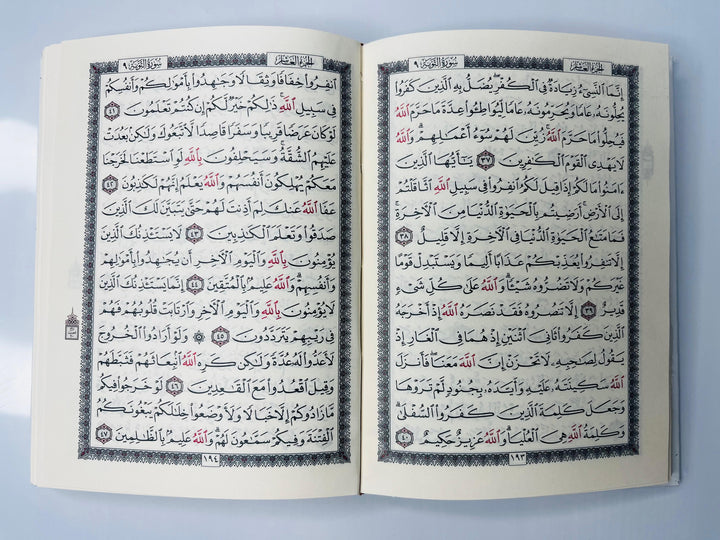 الجزء العاشر
سورة التوبة ٩
إِنَّمَا ٱلنَّسِىٓءُ زِيَادَةٌ فِى ٱلْكُفْرِ يُضَلُّ بِهِ ٱلَّذِينَ كَفَرُوا۟
يُحِلُّونَهُۥ عَامًا وَيُحَرِّمُونَهُۥ عَامًا لِّيُوَاطِـُٔوا۟ عِدَّةَ مَا حَرَّمَ ٱللَّهُ
فَيُحِلُّوا۟ مَا حَرَّمَ ٱللَّهُ زُيِّنَ لَهُمْ سُوٓءُ أَعْمَٰلِهِمْ وَٱللَّهُ
لَا يَهْدِى ٱلْقَوْمَ ٱلْكَٰفِرِينَ ٣٧ يَٰٓأَيُّهَا ٱلَّذِينَ
ءَامَنُوا۟ مَا لَكُمْ إِذَا قِيلَ لَكُمُ ٱنفِرُوا۟ فِى سَبِيلِ ٱللَّهِ ٱثَّاقَلْتُمْ
إِلَى ٱلْأَرْضِ أَرَضِيتُم بِٱلْحَيَوٰةِ ٱلدُّنْيَا مِنَ ٱلْءَاخِرَةِ
فَمَا مَتَٰعُ ٱلْحَيَوٰةِ ٱلدُّنْيَا فِى ٱلْءَاخِرَةِ إِلَّا قَلِيلٌ ٣٨
إِلَّا تَنفِرُوا۟ يُعَذِّبْكُمْ عَذَابًا أَلِيمًا وَيَسْتَبْدِلْ قَوْمًا
غَيْرَكُمْ وَلَا تَضُرُّوهُ شَيْـًٔا وَٱللَّهُ عَلَىٰ كُلِّ شَىْءٍ
قَدِيرٌ ٣٩ إِلَّا تَنصُرُوهُ فَقَدْ نَصَرَهُ ٱللَّهُ إِذْ أَخْرَجَهُ
ٱلَّذِينَ كَفَرُوا۟ ثَانِىَ ٱثْنَيْنِ إِذْ هُمَا فِى ٱلْغَارِ إِذْ
يَقُولُ لِصَٰحِبِهِۦ لَا تَحْزَنْ إِنَّ ٱللَّهَ مَعَنَا فَأَنزَلَ
ٱللَّهُ سَكِينَتَهُۥ عَلَيْهِ وَأَيَّدَهُۥ بِجُنُودٍ لَّمْ تَرَوْهَا
وَجَعَلَ كَلِمَةَ ٱلَّذِينَ كَفَرُوا۟ ٱلسُّفْلَىٰ
وَكَلِمَةُ ٱللَّهِ هِىَ ٱلْعُلْيَا وَٱللَّهُ عَزِيزٌ حَكِيمٌ ٤٠
١٩٣
الجزء العاشر
سورة التوبة ٩
ٱنفِرُوا۟ خِفَافًا وَثِقَالًا وَجَٰهِدُوا۟ بِأَمْوَٰلِكُمْ وَأَنفُسِكُمْ
فِى سَبِيلِ ٱللَّهِ ذَٰلِكُمْ خَيْرٌ لَّكُمْ إِن كُنتُمْ تَعْلَمُونَ ٤١
لَوْ كَانَ عَرَضًا قَرِيبًا وَسَفَرًا قَاصِدًا لَّٱتَّبَعُوكَ وَلَٰكِنۢ بَعُدَتْ
عَلَيْهِمُ ٱلشُّقَّةُ وَسَيَحْلِفُونَ بِٱللَّهِ لَوِ ٱسْتَطَعْنَا لَخَرَجْنَا
مَعَكُمْ يُهْلِكُونَ أَنفُسَهُمْ وَٱللَّهُ يَعْلَمُ إِنَّهُمْ لَكَٰذِبُونَ ٤٢
عَفَا ٱللَّهُ عَنكَ لِمَ أَذِنتَ لَهُمْ حَتَّىٰ يَتَبَيَّنَ لَكَ ٱلَّذِينَ
صَدَقُوا۟ وَتَعْلَمَ ٱلْكَٰذِبِينَ ٤٣ لَا يَسْتَـْٔذِنُكَ ٱلَّذِينَ
يُؤْمِنُونَ بِٱللَّهِ وَٱلْيَوْمِ ٱلْءَاخِرِ أَن يُجَٰهِدُوا۟ بِأَمْوَٰلِهِمْ
وَأَنفُسِهِمْ وَٱللَّهُ عَلِيمٌۢ بِٱلْمُتَّقِينَ ٤٤ إِنَّمَا يَسْتَـْٔذِنُكَ ٱلَّذِينَ
لَا يُؤْمِنُونَ بِٱللَّهِ وَٱلْيَوْمِ ٱلْءَاخِرِ وَٱرْتَابَتْ قُلُوبُهُمْ فَهُمْ
فِى رَيْبِهِمْ يَتَرَدَّدُونَ ٤٥ ۞ وَلَوْ أَرَادُوا۟ ٱلْخُرُوجَ
لَأَعَدُّوا۟ لَهُۥ عُدَّةً وَلَٰكِن كَرِهَ ٱللَّهُ ٱنۢبِعَاثَهُمْ فَثَبَّطَهُمْ
وَقِيلَ ٱقْعُدُوا۟ مَعَ ٱلْقَٰعِدِينَ ٤٦ لَوْ خَرَجُوا۟ فِيكُم
مَّا زَادُوكُمْ إِلَّا خَبَالًا وَلَأَوْضَعُوا۟ خِلَٰلَكُمْ يَبْغُونَكُمُ
ٱلْفِتْنَةَ وَفِيكُمْ سَمَّٰعُونَ لَهُمْ وَٱللَّهُ عَلِيمٌۢ بِٱلظَّٰلِمِينَ ٤٧
١٩٤